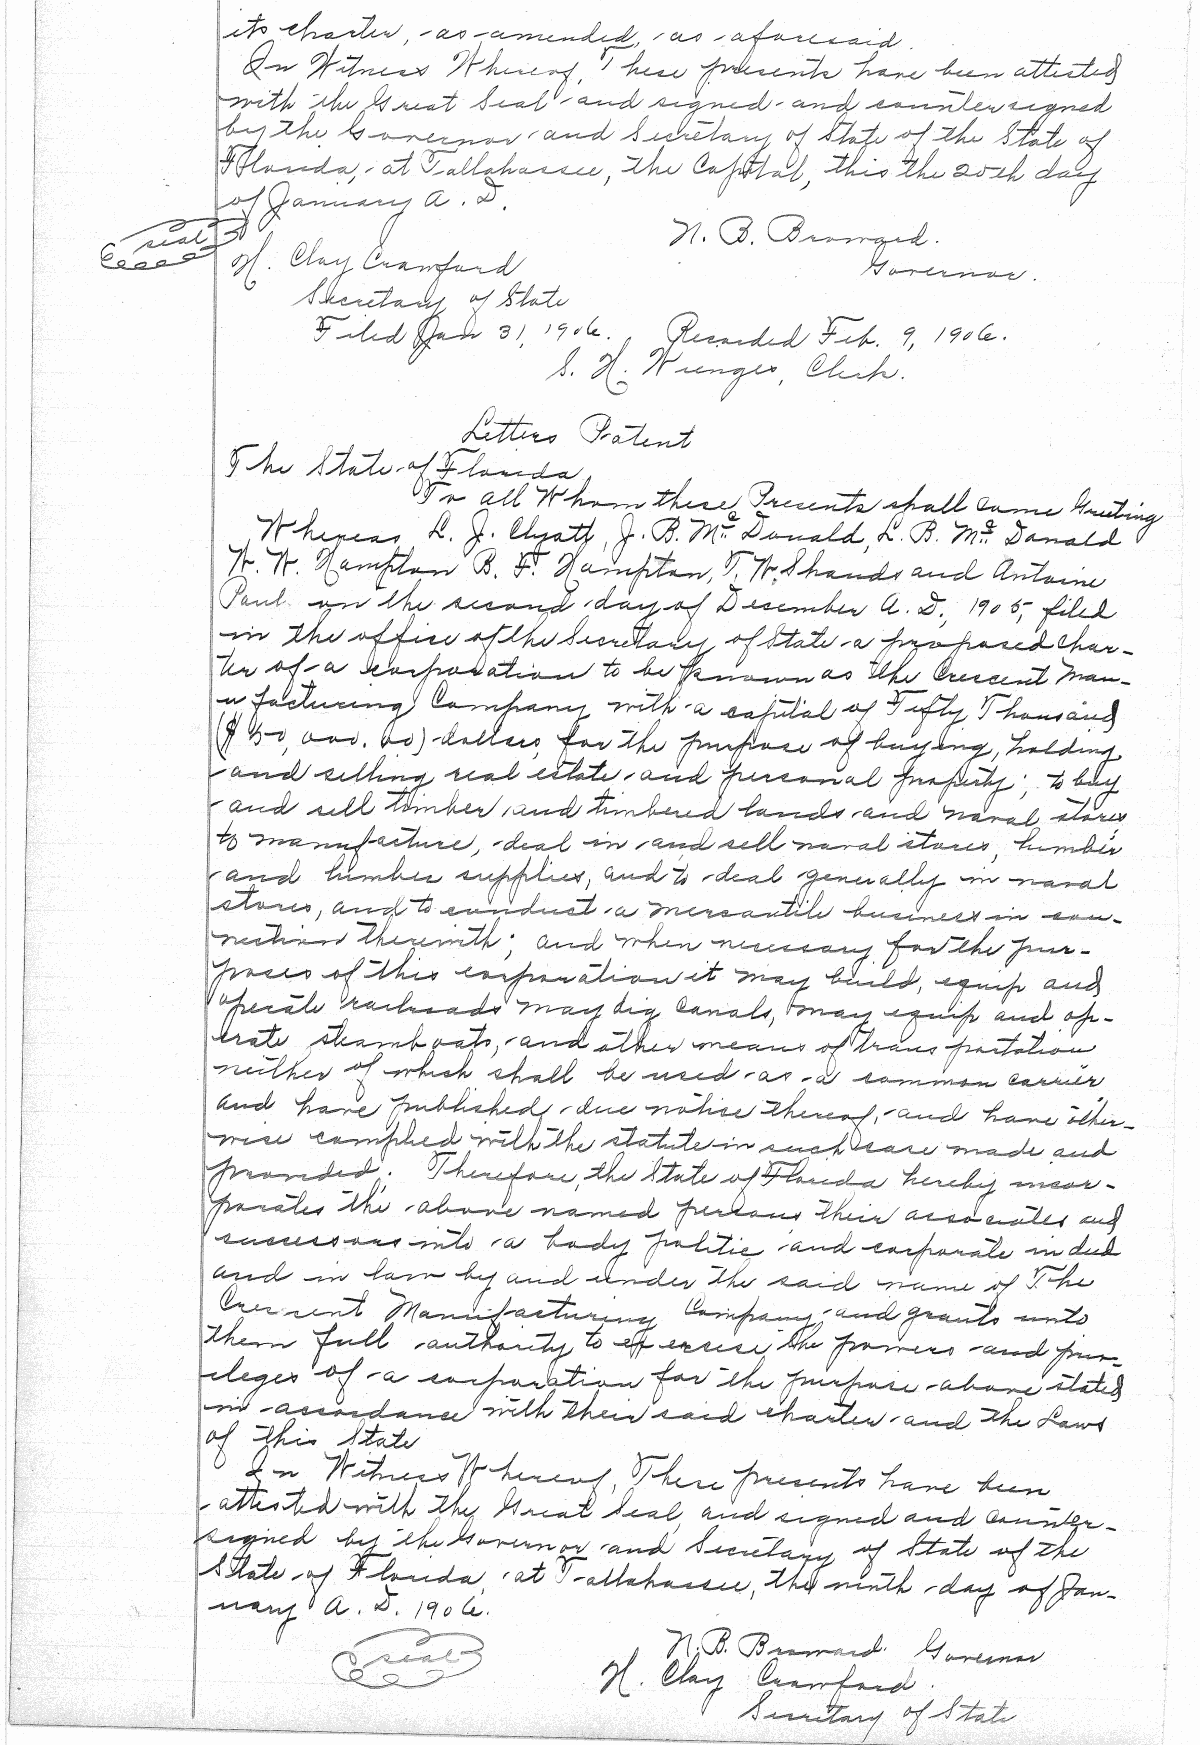 its charter, as amended, as aforesaid.
In Witness Whereof, These presents have been attested
with the Great Seal and signed and countersigned
by the Governor and Secretary of State of the State of
Florida, at Tallahassee, the Capital, this the 20th day
of January A. D.
seal
N. B. Broward.
Governor.
H. Clay Crawford
Secretary of State
Filed Jan 31, 1906. Recorded Feb. 9, 1906.
S. H. Wienges, Clerk.
Letters Patent
The State of Florida
To all Whom these Presents shall come Greeting
Whereas, L. J. Clyatt, J. B. McDonald, L. B. McDonald
W. W. Hampton B. F. Hampton, T. W. Shands and Antoine
Paul on the second day of December A. D., 1905, filed
in the office of the Secretary of State a proposed char-
ter of a corporation to be known as the Crescent Man-
ufacturing Company with a capital of Fifty Thousand
($50,000.00) dollars, for the purpose of buying, holding
and selling real estate and personal property; to buy
and sell timber and timbered lands and naval stores,
to manufacture, deal in and sell naval stores, lumber
and lumber supplies, and to deal generally in naval
stores, and to conduct a mercantile business in con-
nection therewith; and when necessary for the pur-
poses of this corporation it may build, equip and
operate railroads may dig canals, may equip and op-
erate steamboats, and other means of transportation
neither of which shall be used as a common carrier
and have published due notise thereof, and have other-
wise complied with the statute in such case made and
provided; Therefore, the State of Florida hereby incor-
porates the above named persons their associates and
successors into a body politic and corporate in deed
and in law by and under the said name of The
Crescent Manufacturing Company and grants unto
them full authority to exercise the powers and priv-
ileges of a corporation for the purpose above stated
in accordance with their said charter and the Laws
of this State
In Witness Whereof, These presents have been
attested with the Great Seal, and signed and counter-
signed by the Governor and Secretary of State of the
State of Florida, at Tallahassee, the ninth day of Jan-
uary A. D. 1906.
seal
N. B. Broward. Governor
H. Clay Crawford.
Secretary of State